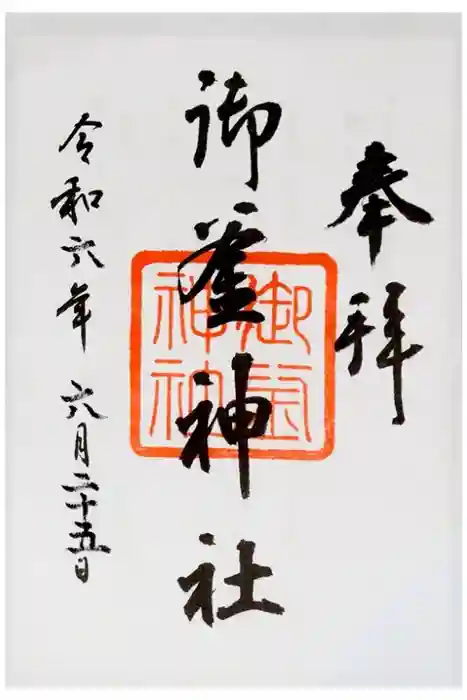 奉拝
御釜神社
令和六年 六月二十五日
御釜神社